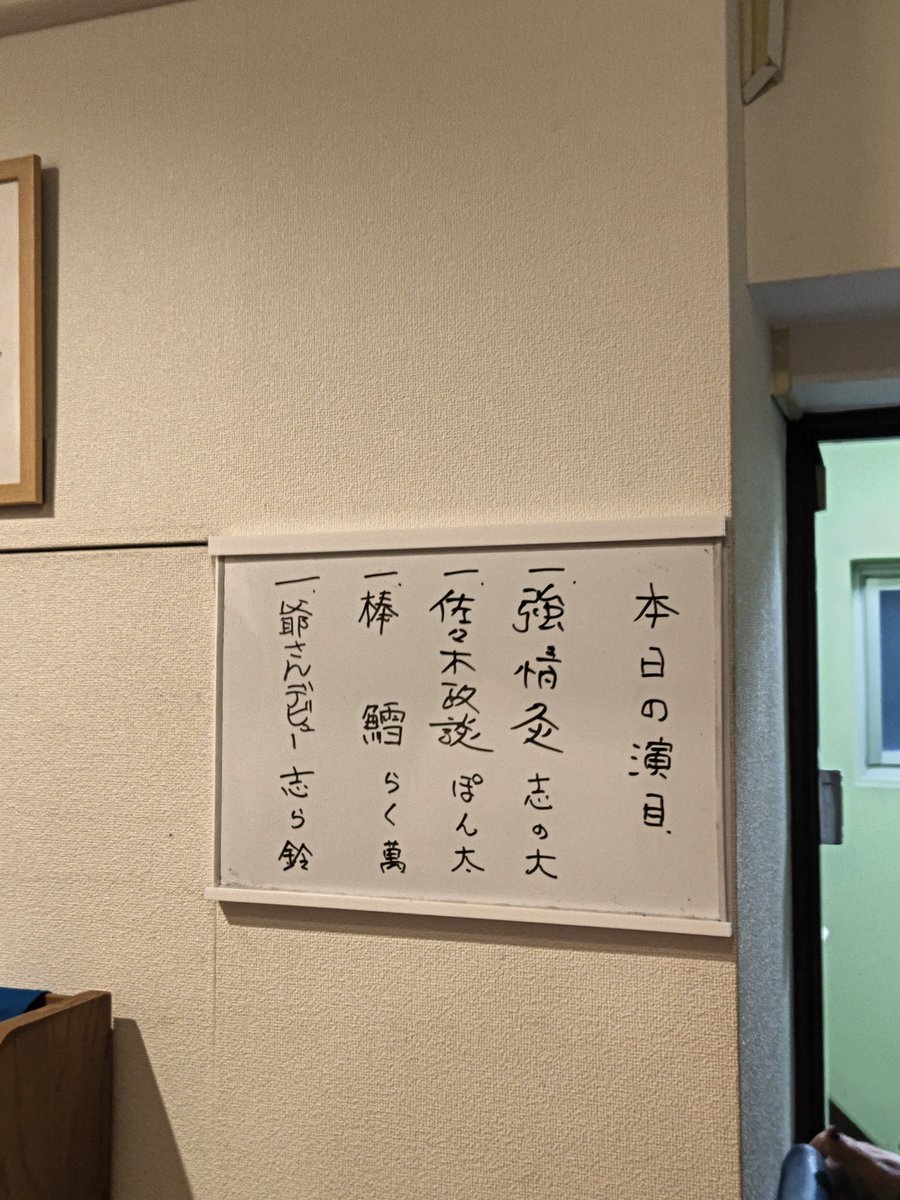 本日の演目
一、強情灸 志の大
一、佐々木政談 ぽん太
一、棒鱈 らく萬
一、爺さんデビュー 志ら鈴